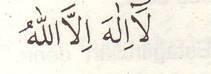 لَٓا اِلٰهَ اِلَّا اللّٰهُ